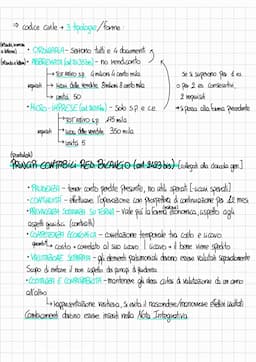 ⇒ codice civile → 3 tipologie/forme:
• ORDINARIA - servono tutti e 4 documenti
• ABBREVIATA (art 2435 bis) - no rendiconto
requisiti → TOT ATTIVO S.P. 4 milioni 4 cento mila
→ ricavi delle vendite 8 milioni 8 cento mila
→ unità 50
se si superano per 1 es.
o per 2 es. consecutivi,
2 requisiti
→ si passa alla forma precedente
• MICRO-IMPRESE (art 2435 ter) - Solo S.P. e C.E.
requisiti → TOT ATTIVO S.P. 175 mila
→ ricavi delle vendite 350 mila
→ unità 5
PRINCIPI CONTABILI RED. BILANCIO (art 2423 bis) [collegati alla clausola gen.]
• PRUDENZA - tener conto perdite presunte, no utili sperati [≠ ricavi sperati]
• CONTINUITÀ - effettuare l'operazione con prospettiva di continuazione per 12 mesi
• PREVALENZA SOSTANZA SU FORMA - Vale più la forma economica, rispetto agli
aspetti giuridici (contratti)
• COMPETENZA ECONOMICA - correlazione temporale tra costo e ricavo
→ costo → correlato al suo ricavo | ricavo → il bene viene spedito
• VALUTAZIONE SEPARATA - gli elementi patrimoniali devono essere valutati separatamente
Scopo di evitare il non rispetto dei principi di prudenza
• COSTANZA E COMPARABILITÀ - mantenere gli stessi criteri di valutazione da un anno
all'altro
↳ rappresentazione veritiera, si evita il nascondere/manomettere effettivi risultati
Cambiamenti devono essere inseriti nella Nota Integrativa